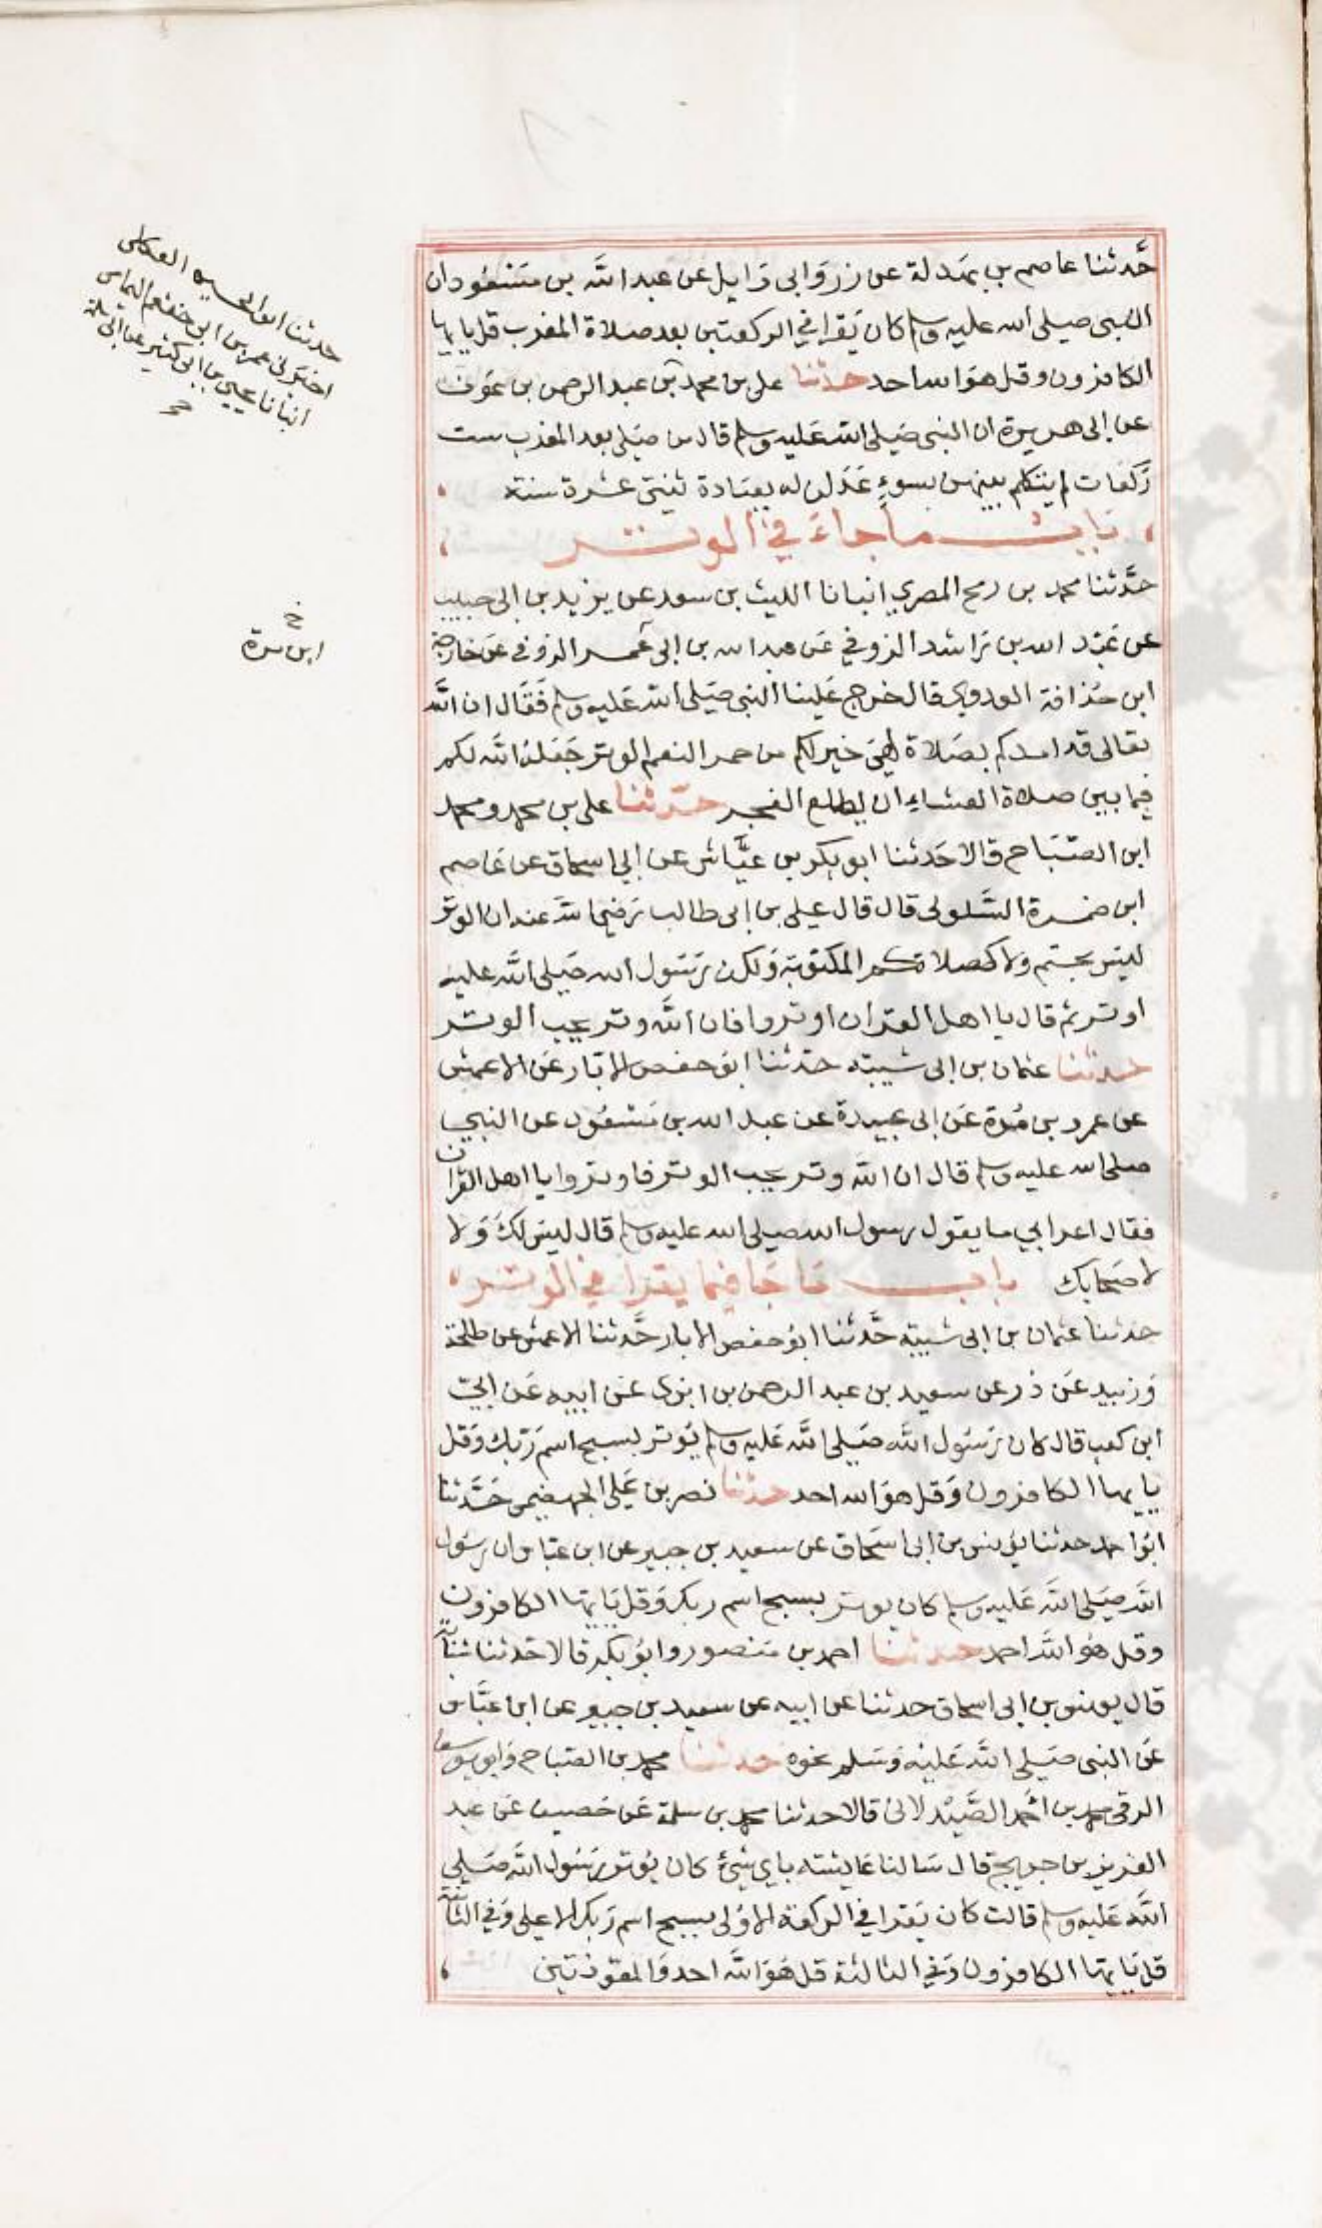 حدثنا عاصم بن بهدلة عن زر وابي وايل عن عبد الله بن مسعود ان
النبي صلى الله عليه وسلم كان يقرا في الركعتين بعد صلاة المغرب قل يا ايها
الكافرون وقل هو الله احد حدثنا على بن محمد بن عبد الرحمن بن عوف
عن ابى هريرة ان النبي صلى الله عليه وسلم قال من صلى بعد المغرب ست
ركعات لم يتكلم بينهن بسوء عدلن له بعبادة ثنتي عشرة سنة
باب ما جاء في الوتر
حدثنا محمد بن رمح المصري انبانا الليث بن سعد عن يزيد بن ابى حبيب
عن عبد الله بن راشد الزوفي عن عبد الله بن ابى عمر الزوفي عن خارجة
ابن حذافة العدوي قال خرج علينا النبي صلى الله عليه وسلم فقال ان الله
تعالى قد امدكم بصلاة لهي خير لكم من حمر النعم الوتر جعله الله لكم
فيما بين صلاة العشاء ان يطلع الفجر حدثنا على بن محمد ومحمد
ابن الصباح قالا حدثنا ابو بكر بن عياش عن ابي اسحاق عن عاصم
ابن ضمرة السلولى قال قال على بن ابى طالب رضي الله عنه ان الوتر
ليس بحتم ولا كصلاتكم المكتوبة ولكن رسول الله صلى الله عليه
اوتر ثم قال يا اهل القران اوتروا فان الله وتر يحب الوتر
حدثنا عثمان بن ابى شيبة حدثنا ابو حفص الابار عن الاعمش
عن عمرو بن مرة عن ابى عبيدة عن عبد الله بن مسعود عن النبي
صلى الله عليه وسلم قال ان الله وتر يحب الوتر فاوتروا يا اهل القران
فقال اعرابي ما يقول رسول الله صلى الله عليه وسلم قال ليس لك ولا
لاصحابك باب ما جا فيما يقرا في الوتر
حدثنا عثمان بن ابى شيبة حدثنا ابو حفص الابار حدثنا الاعمش عن طلحة
وزبيد عن ذر عن سعيد بن عبد الرحمن بن ابزى عن ابيه عن ابي
ابن كعب قال كان رسول الله صلى الله عليه وسلم يوتر بسبح اسم ربك وقل
يا يها الكافرون وقل هو الله احد حدثنا نصر بن على الجهضمى حدثنا
ابو احمد حدثنا يونس بن ابى اسحاق عن سعيد بن جبير عن ابن عباس ان رسول
الله صلى الله عليه وسلم كان يوتر بسبح اسم ربك وقل يا يها الكافرون
وقل هو الله احد حدثنا احمد بن منصور وابو بكر قالا حدثنا شبابة
قال يونس بن ابى اسحاق حدثنا عن ابيه عن سعيد بن جبير عن ابن عباس
عن النبي صلى الله عليه وسلم نحوه حدثنا محمد بن الصباح وابو يوسف
الرقى محمد بن احمد الصيدلانى قالا حدثنا محمد بن سلمة عن خصيف عن عبد
العزيز بن جريج قال سالنا عايشة باي شئ كان يوتر رسول الله صلى
الله عليه وسلم قالت كان يقرا في الركعة الاولى بسبح اسم ربك الاعلى وفي الثانية
قل يا يها الكافرون وفي الثالثة قل هو الله احد والمعوذتين
حدثنا ابو الحسين العكلى
اخبرنى عمر بن ابى خثعم اليمامى
انبانا يحيى بن ابى كثير عن ابى سلمة
صح
خ
ابن مرة